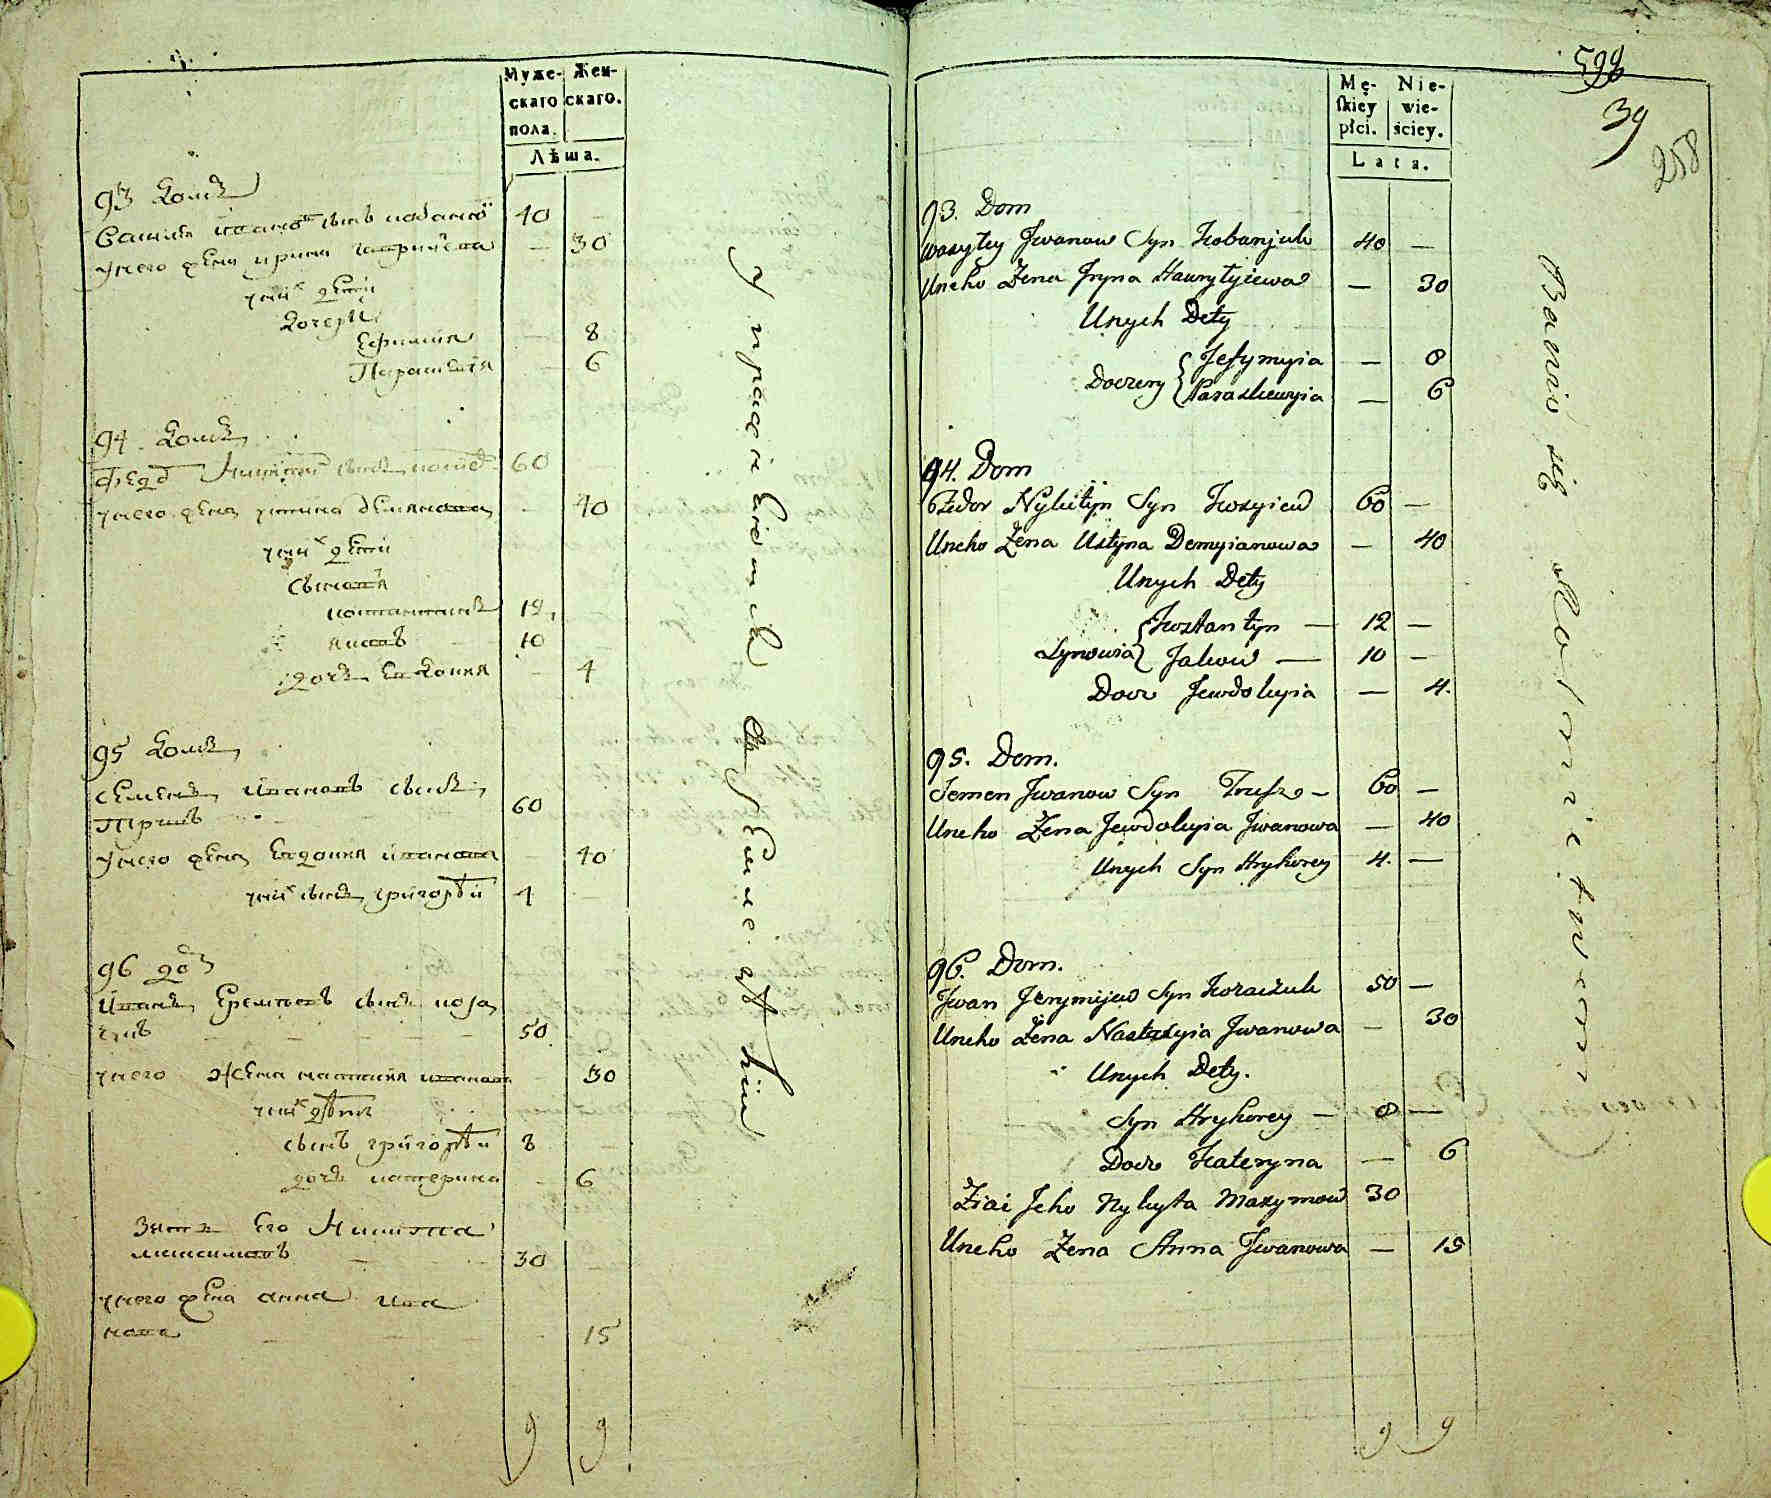 Муже- Жен-
скаго скаго.
пола.
Лѣта.
93 домъ
Василїй Ивановъ сынъ кобанюк 40 –
унего жена ирина гаврилѣва – 30
уних дети
дочери
Ефимия – 8
Параскевїя – 6
94 домъ
Федор Никитин сынъ 60
унего жена устина демянова – 40
уних дети
сыновя
костантинъ 12
яковъ 10
дочь Евдокия – 4
95 домъ
семенъ Ивановъ сынъ
Трушъ 60
унего жена Евдокия иванова – 40
уних сынъ григорѣй 4 –
96 дом
Иванъ Еремѣевъ сынъ коза
50
унего жена настасия иванова – 30
уних дѣти
сынъ григорѣй 8 –
дочь катерина – 6
Зять Его Никита
максимовъ 30
унего жена анна ива
нова – 15
9 9
598
39
258
Mę- Nie-
skiey wie-
płci. ściey.
Lata.
93. Dom
Wasyley Jwanow Syn Kobanjuk 40 –
Uneho Żena Jryna Hawryłyiewa – 30
Unych Dety
Doczery { Jefymyia – 8
Paraskewyia – 6
94. Dom
Fedor Nykityn Syn 60 –
Uneho Żena Ustyna Demyianowa – 40
Unych Dety
Synowia { Kostantyn – 12 –
Jakow – 10 –
Docz Jewdokyia – 4.
95. Dom.
Semen Jwanow Syn Trusz – 60 –
Uneho Żena Jewdokyia Jwanowa – 40
Unych Syn Hryhorey 4. –
96. Dom.
Jwan Jerymijew Syn 50 –
Uneho Żena Nastasyia Jwanowa – 30
Unych Dety.
Syn Hryhorey – 8 –
Docz Kateryna – 6
Ziat Jeho Nykyta Maxymow 30
Uneho Żena Anna Jwanowa – 15
9 9